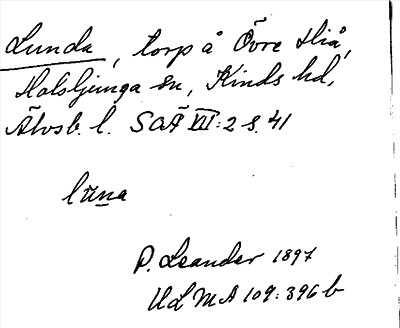 Lunda, torp å Övre Hiå,
Holsljunga sn, Kinds hd,
Älvsb. l. SOÄ VII:2 s. 41
lūna
P. Leander 1897
ULMA 109:396 b